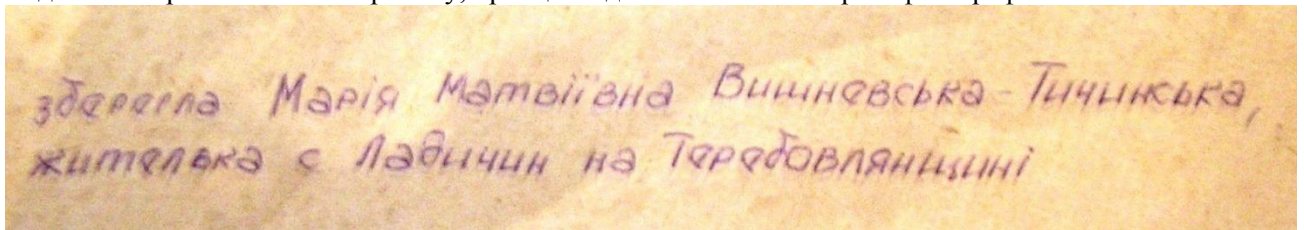 зберегла Марія Матвіївна Вишневська-Тичинська,
жителька с Ладичин на Теребовлянщині